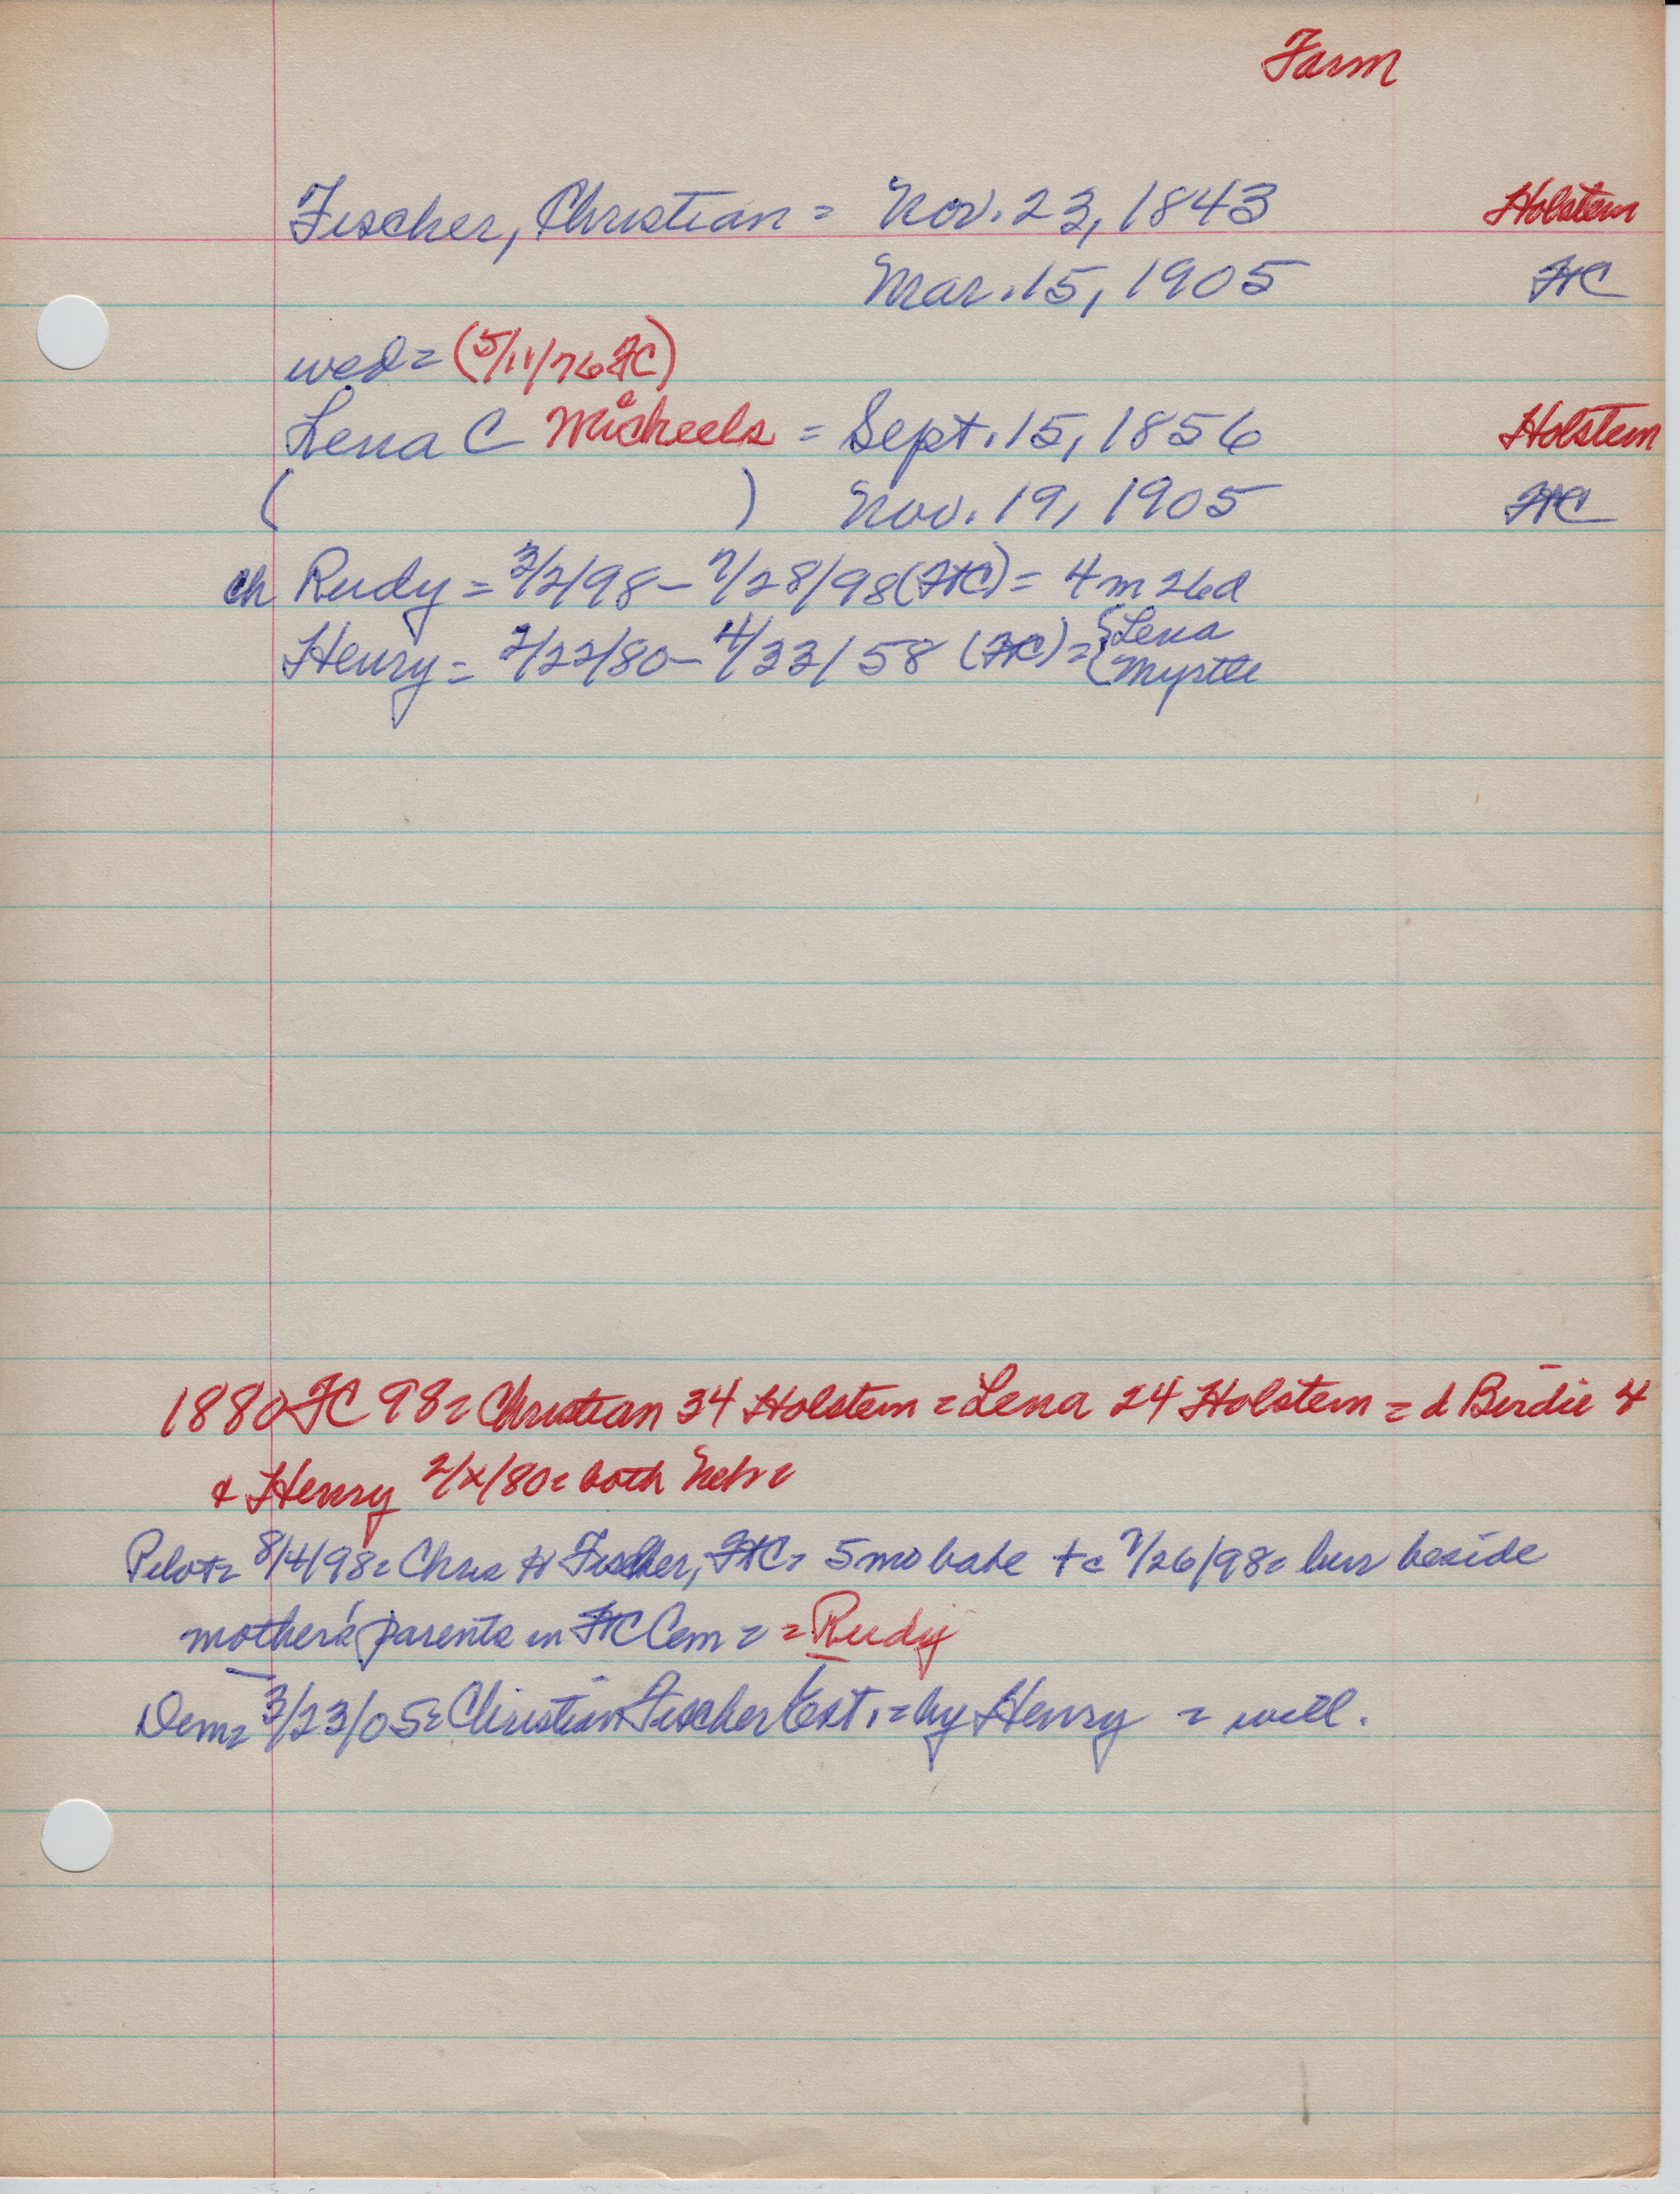 Farm
Fischer, Christian = Nov. 23, 1843 Holstein
Mar. 15, 1905 FC
wed = (5/11/76 FC)
a
Lena C Micheels = Sept. 15, 1856 Holstein
( ) Nov. 19, 1905 FC
ch Rudy = 3/2/98 - 7/28/98 (FC) = 4 m 26d
Henry = 2/22/80 - 4/23/58 (FC) = { Lena
{ Myrtle
1880 FC 98 = Christian 34 Holstein = Lena 24 Holstein = d Birdie 4
& Henry 2/x/80 = both Nebr =
Pilot = 8/4/98 = Chris H Fischer, FC = 5 mo babe + = 7/26/98 = bur beside
mother's parents in FC Cem = = Rudy
Dem = 3/23/05 = Christian Fischer Est. = by Henry = will.